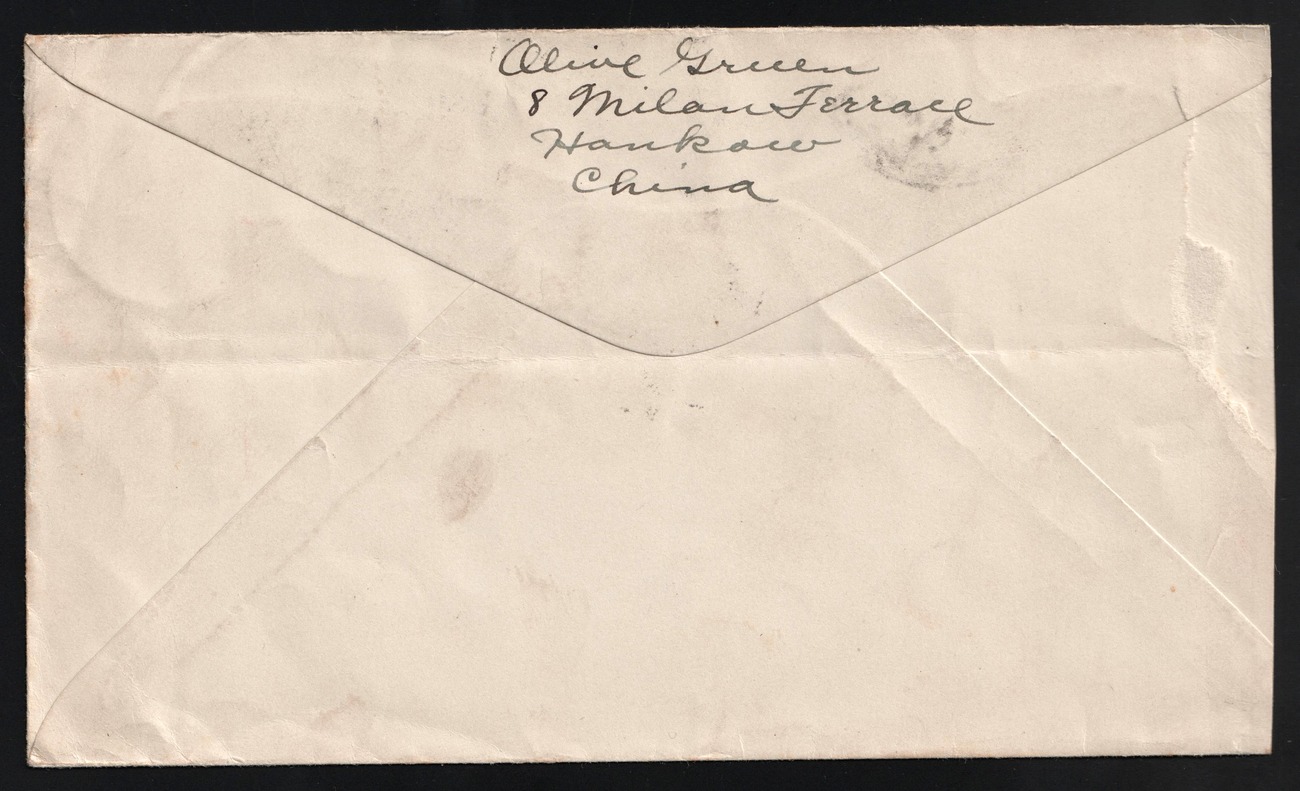 Olive Gruen
8 Milan Terrace
Hankow
China